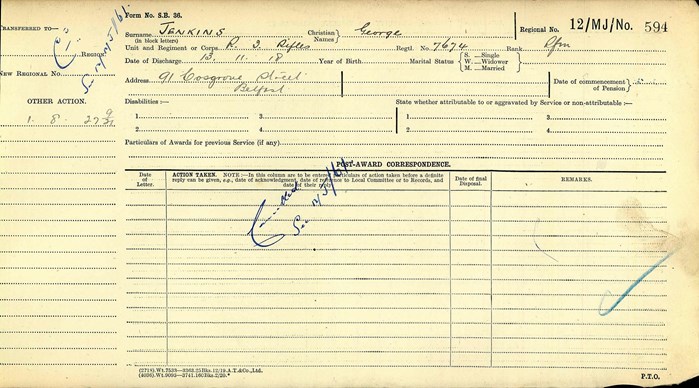 TRANSFERRED TO:—
REGION
NEW REGIONAL No.
OTHER ACTION.
1. 8. 27
Form No. S.B. 36.
Surname JENKINS
(in block letters)
Christian Names George
Regional No. 12/MJ/No. 594
Unit and Regiment or Corps R. I. Rifles
Regtl. No. 7674
Rank Rfm
Date of Discharge 13. 11. 18
Year of Birth
Marital Status
S. —Single
W.—Widower
M.—Married
Address 91 Cosgrove Street
Belfast
Date of commencement of Pension
Disabilities :—
State whether attributable to or aggravated by Service or non-attributable :—
1. 3. 1. 3.
2. 4. 2. 4.
Particulars of Awards for previous Service (if any)
POST-AWARD CORRESPONDENCE.
Date of Letter.
ACTION TAKEN. NOTE :—In this column are to be entered particulars of action taken before a definite
reply can be given, e.g., date of acknowledgment, date of reference to Local Committee or to Records, and
date of their reply
Date of final Disposal.
REMARKS.
(2718).Wt.7539—9363.25Bks.12/19.A.T.&Co.,Ltd.
(4036).Wt.9093—2741.16CBks.2/20.*
P.T.O.